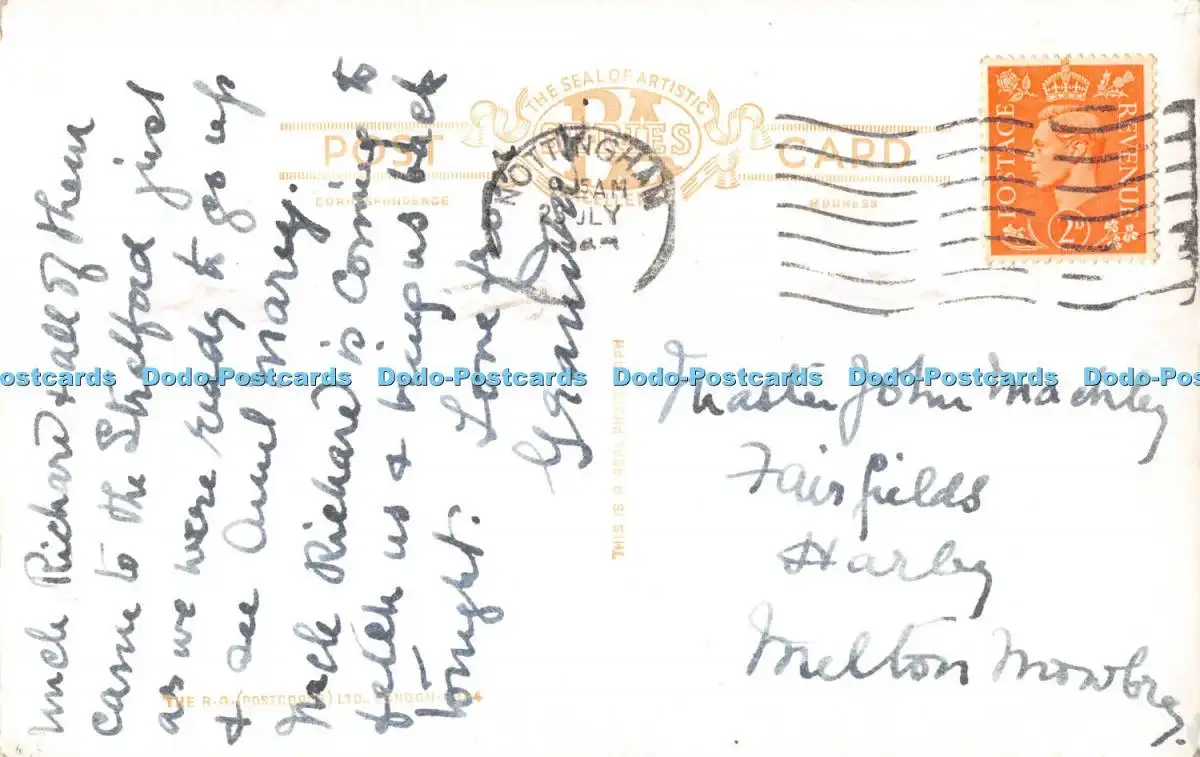 THE SEAL OF ARTISTIC
RA
SERIES
POST CARD
CORRESPONDENCE ADDRESS
NOTTINGHAM
JLY
POSTAGE REVENUE
2D
Uncle Richard & all of them
came to the Stratford just
as we were ready to go up
& see Aunt Mary.
Uncle Richard is coming to
fetch us & bring us back
tonight.
Love from
THIS IS A REAL PHOTOGRAPH
Master John
Fairfields
Harby
Melton Mowbray.
Dodo-Postcards Dodo-Postcards Dodo-Postcards Dodo-Postcards Dodo-Postcards
THE R.A. (POSTCARDS) LTD., LONDON